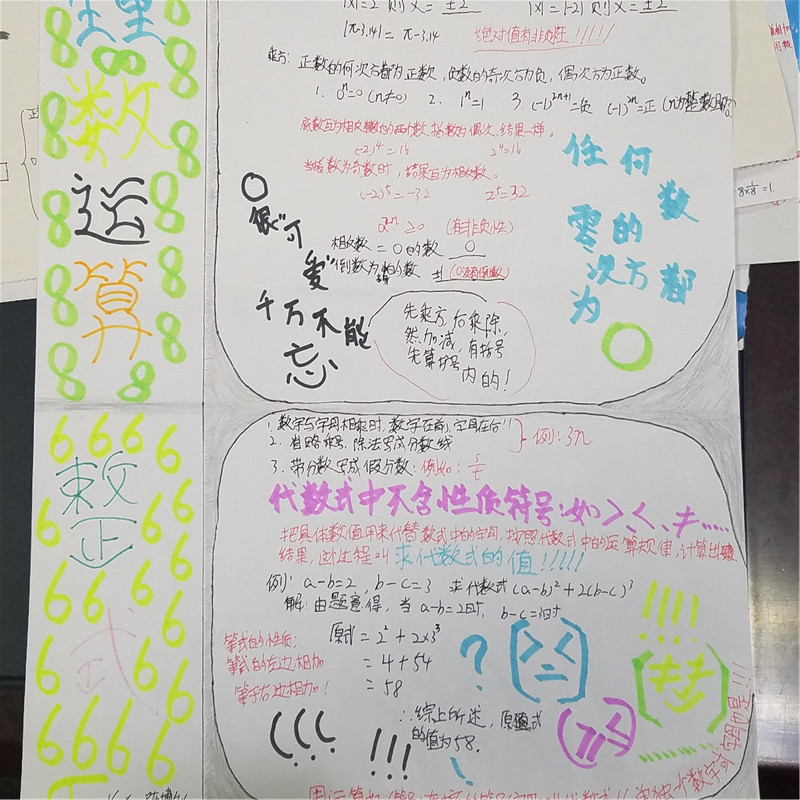 理
数
运
算
整
式
|x|=2 则x=±2 |x|=|-2| 则x=±2
|π-3.14|=π-3.14 绝对值有非负性!!!!!
乘方:正数的何次方都为正数,负数的奇次方为负,偶次方为正数。
1. 0ⁿ=0 (n≠0) 2. 1ⁿ=1 3. (-1)²ⁿ⁺¹=负 (-1)²ⁿ=正
底数互为相反数的两个数,指数为偶次,结果一样。
(-2)⁴=16 2⁴=16
当指数为奇数时,结果互为相反数。
(-2)⁵=-32 2⁵=32
a²ⁿ≥0 (有非负性)
相反数=0的数 0
倒数为 的数 ±1
任何数
零的
次方都
为
0很"可
爱"
千万不能
忘
先乘方,后乘除,
然加减,有括号
先算括号
内的!
8×1/8=1.
1.数字与字母相乘时,数字在前,字母在后!!
2.省略乘号,除法写成分数线
例:3n
3.带分数写成假分数:例如:s/t
代数式中不含性质符号:如>、<、≠......
把具体数值用来代替数式中的字母,按照代数式中的运算规律,计算出
结果,这过程叫求代数式的值!!!!!
例:a-b=2,b-c=3 求代数式(a-b)²+2(b-c)³
解:由题意得,当a-b=2时,b-c=3时
原式=2²+2×3³
=4+54
=58
∴综上所述,原式
的值为58.
等式的性质:
等式的左边相加
等于右边相加!
?
!!!!
(((
!!!
用运算